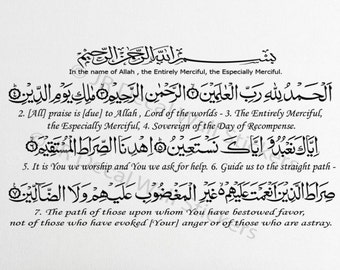 بِسْمِ اللَّهِ الرَّحْمَٰنِ الرَّحِيمِ
In the name of Allah , the Entirely Merciful, the Especially Merciful.
اَلْحَمْدُ لِلَّهِ رَبِّ الْعَالَمِينَ ۝ الرَّحْمَٰنِ الرَّحِيمِ ۝ مَالِكِ يَوْمِ الدِّينِ ۝
2. [All] praise is [due] to Allah , Lord of the worlds - 3. The Entirely Merciful,
the Especially Merciful, 4. Sovereign of the Day of Recompense.
إِيَّاكَ نَعْبُدُ وَإِيَّاكَ نَسْتَعِينُ ۝ اِهْدِنَا الصِّرَاطَ الْمُسْتَقِيمَ ۝
5. It is You we worship and You we ask for help. 6. Guide us to the straight path -
صِرَاطَ الَّذِينَ أَنْعَمْتَ عَلَيْهِمْ غَيْرِ الْمَغْضُوبِ عَلَيْهِمْ وَلَا الضَّالِّينَ ۝
7. The path of those upon whom You have bestowed favor,
not of those who have evoked [Your] anger or of those who are astray.